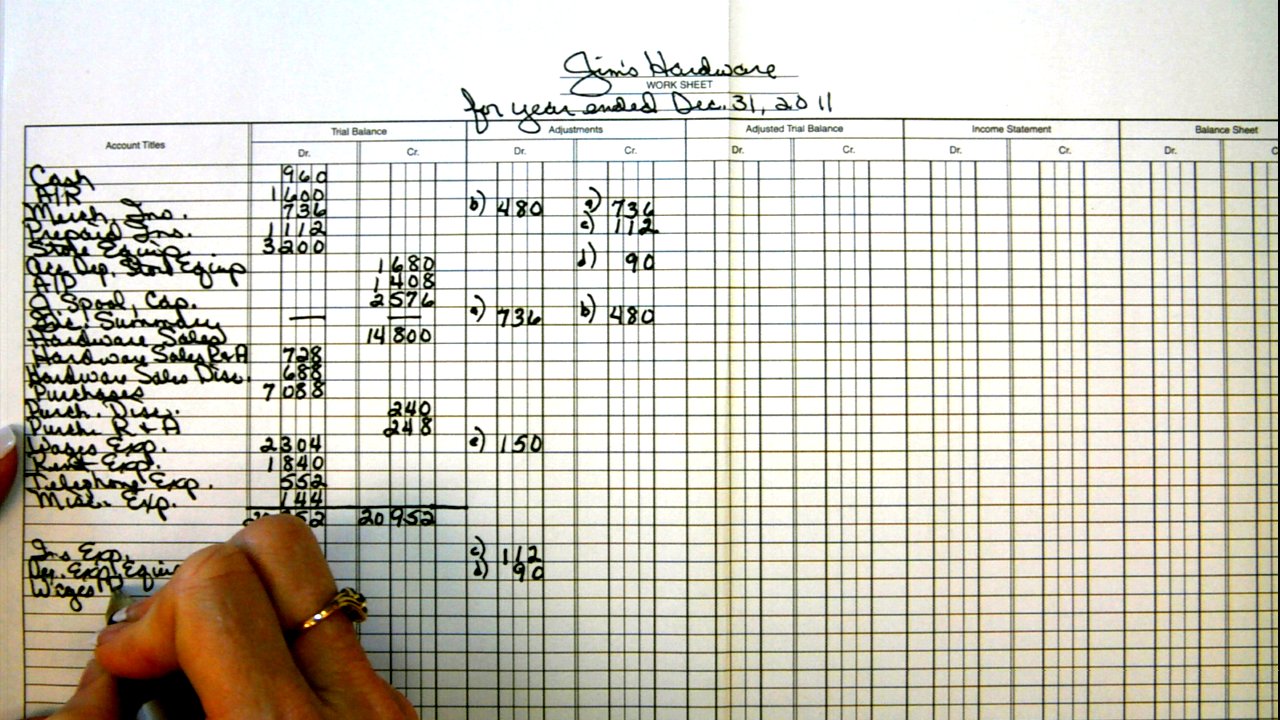 Jim's Hardware
WORK SHEET
for year ended Dec. 31, 2011
Account Titles Trial Balance Adjustments Adjusted Trial Balance Income Statement Balance Sheet
Dr. Cr. Dr. Cr. Dr. Cr. Dr. Cr. Dr. C
Cash 960
A/R 1600
Merch. Ins. 736 b) 480 a) 736
Prepaid Ins. 1112 c) 112
Store Equip. 3200
Acc. Dep. Store Equip 1680 d) 90
A/P 1408
J. Spool, Cap. 2576
Inc. Summary — — a) 736 b) 480
Hardware Sales 14800
Hardware Sales R&A 728
Hardware Sales Disc. 688
Purchases 7088
Purch. Disc. 240
Purch. R&A 248
Wages Exp. 2304 e) 150
Rent Exp. 1840
Telephone Exp. 552
Misc. Exp. 144
52 20952
Ins Exp. c) 112
Dep. Exp. Equip d) 90
Wages